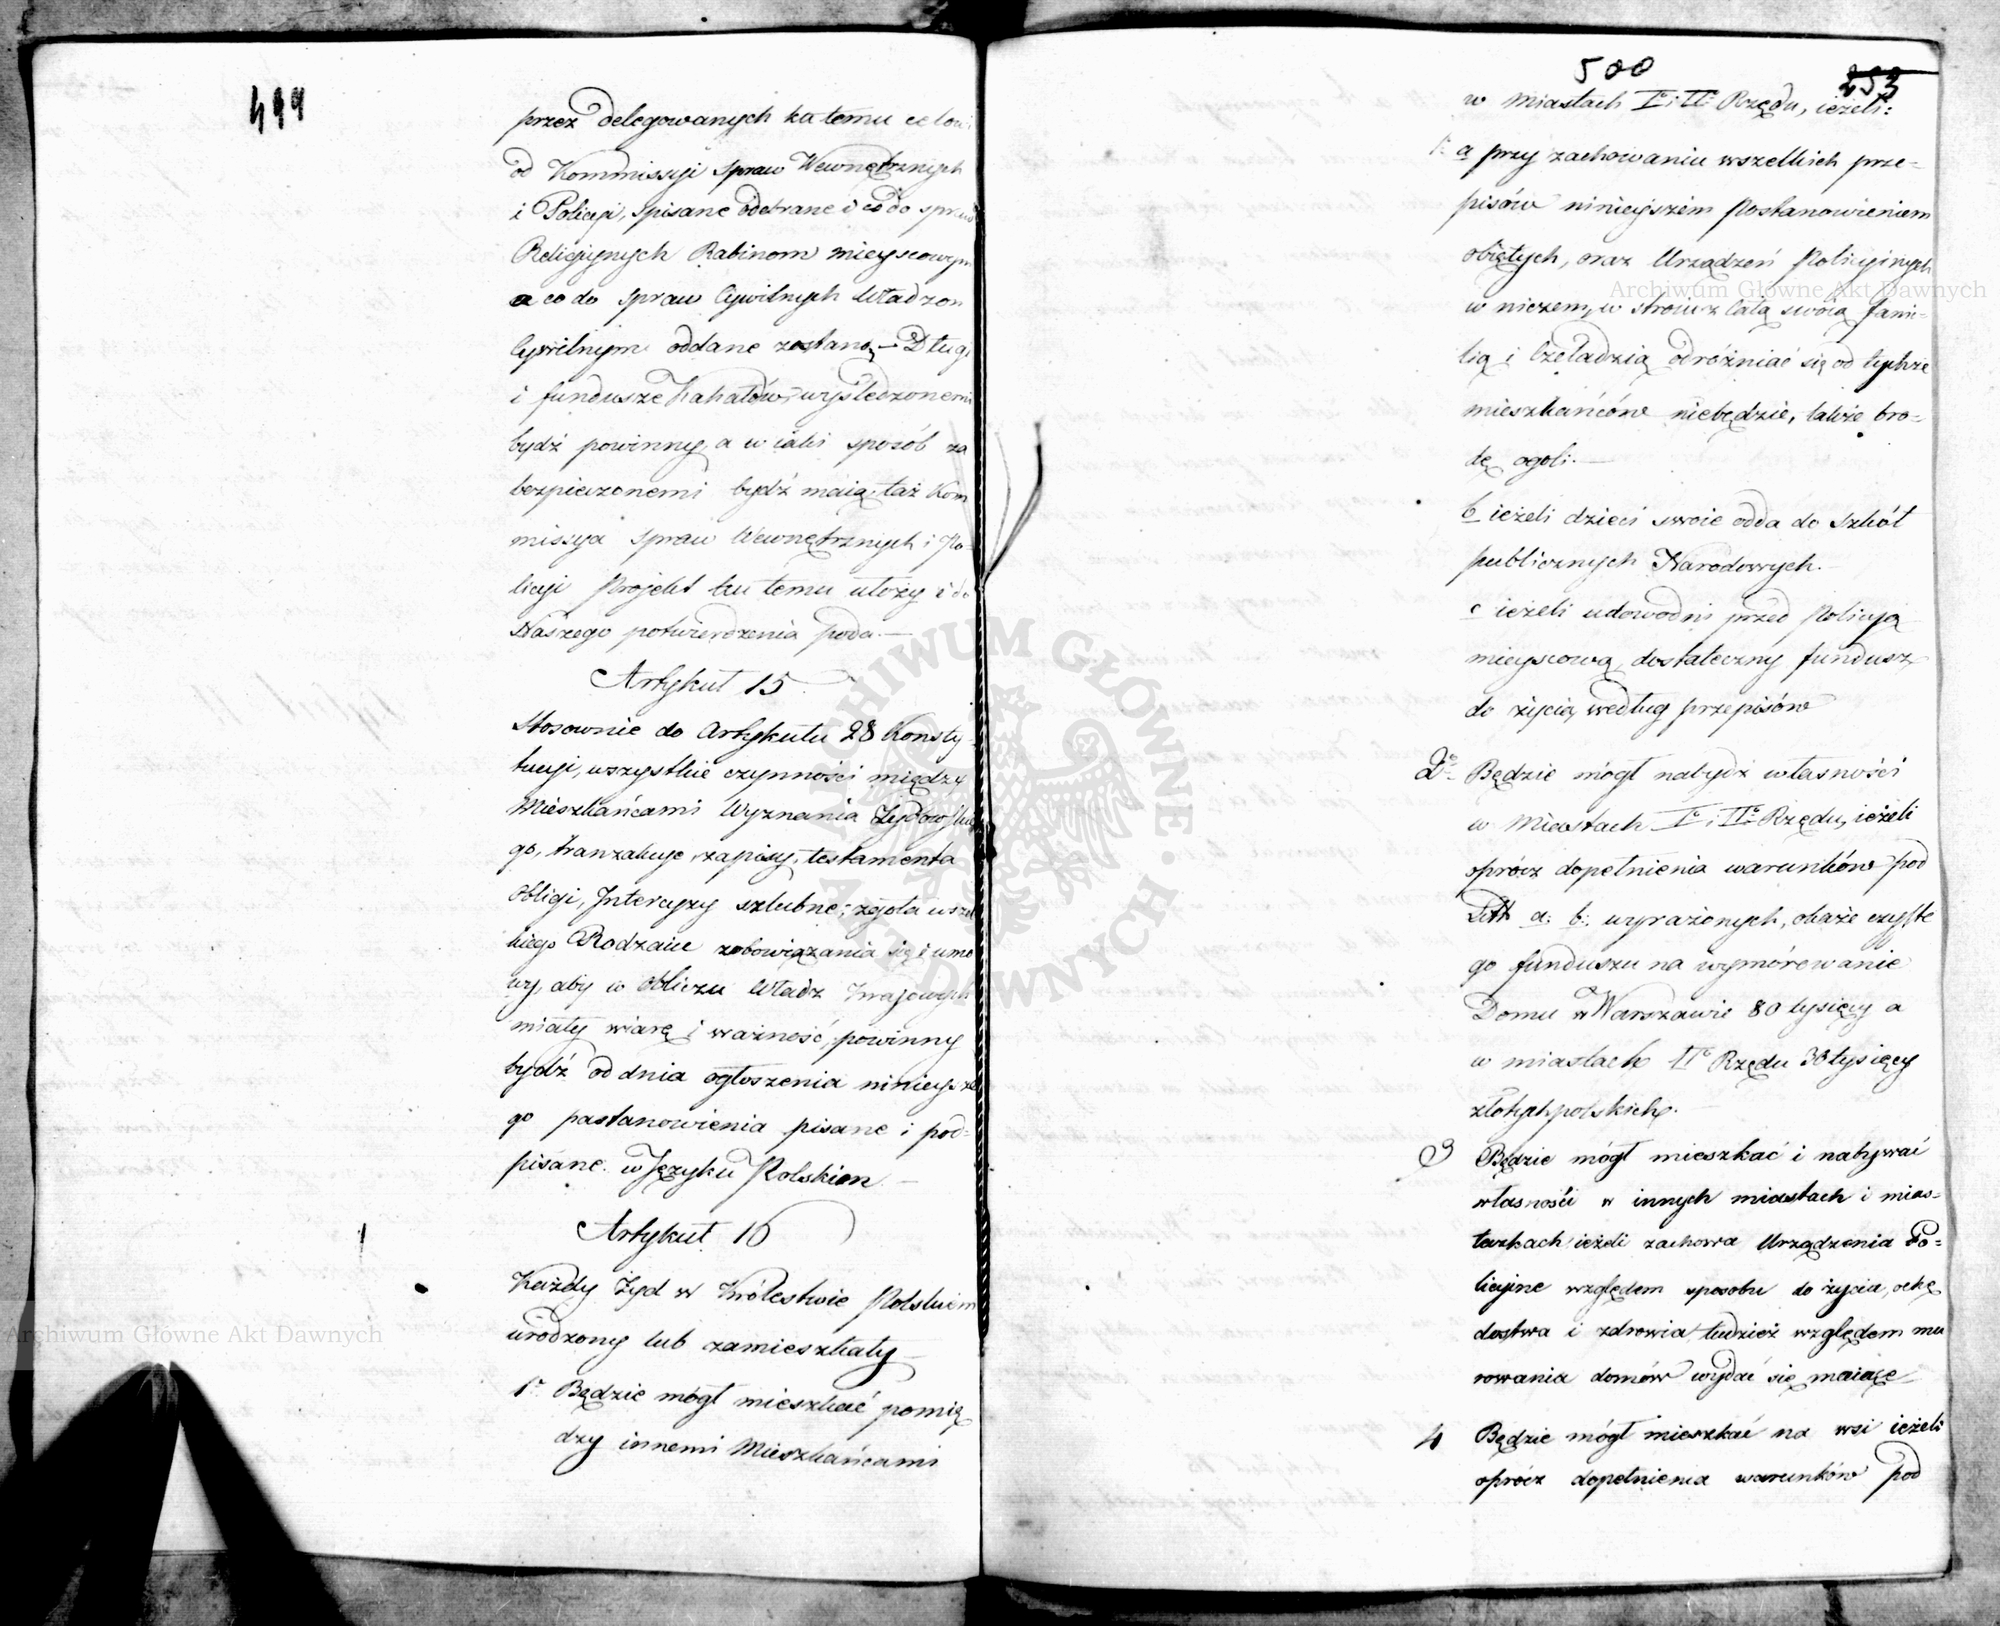 499
przez delegowanych ku temu celowi
od Kommissyi Spraw Wewnętrznych
i Policyi, spisane odebrane i co do spraw
Religijnych Rabinom mieyscowym
a co do spraw Cywilnych Władzom
Cywilnym oddane zostaną – Długi
i fundusze Kahałów wyśledzonemi
bydź powinny, a w iaki sposób za
bezpieczonemi bydź maią, taż Kom
missya Spraw Wewnętrznych i Po-
licyi Projekt ku temu ułoży i do
Naszego potwierdzenia poda. –
Artykuł 15
Stosownie do Artykułu 28 Konsty-
tucyi, wszystkie czynności między
Mieszkańcami Wyznania Żydowskie
go, tranzakcye, zapisy, testamenta
obligi, Intercyzy szlubne, zgoła wszel
kiego Rodzaiu zobowiązania się i umo
wy, aby w obliczu Władz Krajowych
miały wiarę i ważność, powinny
bydź od dnia ogłoszenia ninieysze
go postanowienia pisane i pod-
pisane w Języku Polskim. –
Artykuł 16
Każdy Żyd w Królestwie Polskiem
urodzony lub zamieszkały –
1° Będzie mógł mieszkać pomię
dzy innemi Mieszkańcami
500
253
w Miastach I° i II° Rzędu, ieżeli:
a przy zachowaniu wszelkich prze-
pisów ninieyszém Postanowieniem
obiętych, oraz Urządzeń Policyinych
w niczem, w stroiu z całą swoią fami-
lią i Czeladzią odróżniać się od tychże
mieszkańców niebędzie, także bro-
dę ogoli. –
b ieżeli dzieci swoie odda do szkół
publicznych Narodowych. –
c ieżeli udowodni przed Policyą
mieyscową, dostateczny fundusz
do życia, według przepisów
2° Będzie mógł nabydź własności
w Miastach I° i II° Rzędu, ieżeli
oprócz dopełnienia warunków pod
Litt a: b: wyrażonych, okaże czyste
go funduszu na wymórowanie
Domu w Warszawie 80 tysięcy a
w miastach II° Rzędu 30 tysięcy
złotych polskich. –
3 Będzie mógł mieszkać i nabywać
własności w innych miastach i mias-
teczkach ieżeli zachowa Urządzenia Po-
licyine względem sposobu do życia, ochę
dostwa i zdrowia tudzież względem mu
rowania domów wydać się maiące
4 Będzie mógł mieszkać na wsi ieżeli
oprócz dopełnienia warunków pod
Archiwum Główne Akt Dawnych
Archiwum Główne Akt Dawnych
ARCHIWUM GŁÓWNE AKT DAWNYCH